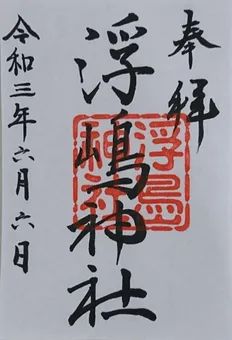 奉拝
浮嶋神社
浮島神社
令和三年六月六日